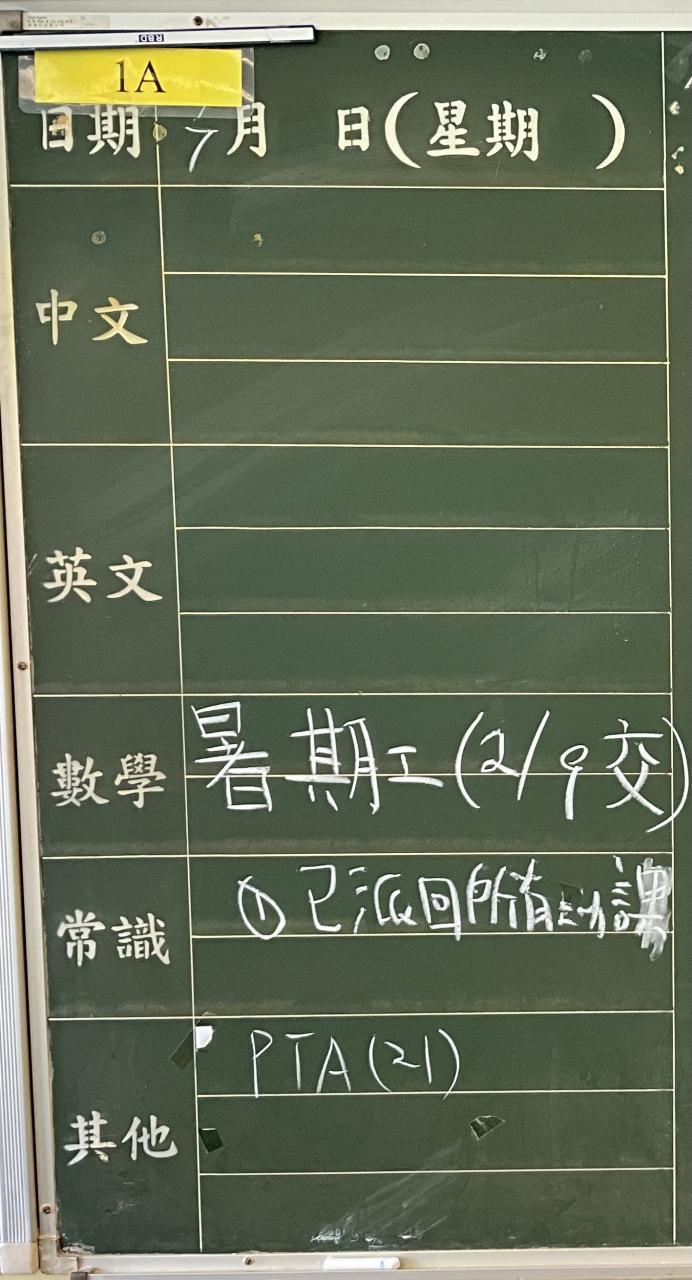 1A
日期 7月 日(星期 )
中文
英文
數學 暑期工(2/9交)
常識 ① 已派回所有
其他 PTA(21)